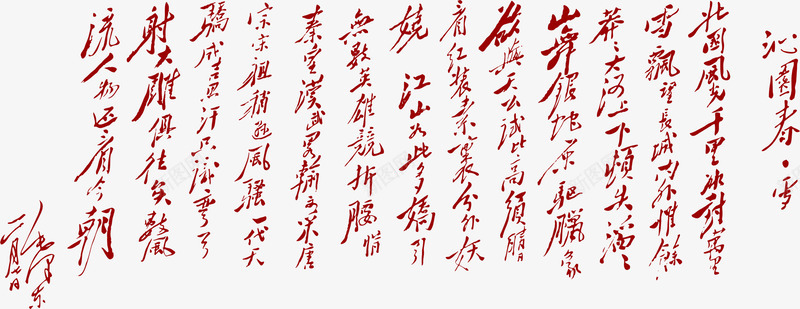 沁園春·雪
北國風光千里冰封萬里
雪飄望長城內外惟餘
莽〻大河上下頓失滔〻
山舞銀蛇原驅臘象
欲與天公試比高須晴日
看紅裝素裹分外妖
嬈 江山如此多嬌引
無數英雄競折腰惜
秦皇漢武略輸文采唐
宗宋祖稍遜風騷一代天
驕成吉思汗只識彎弓
射大雕俱往矣數風
流人物還看今朝
毛澤東